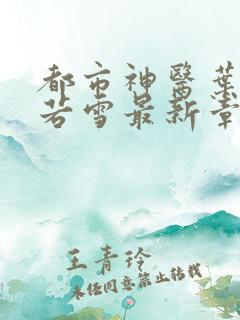 都市神醫葉
若雪最新章
王青玲
未经同意禁止转载